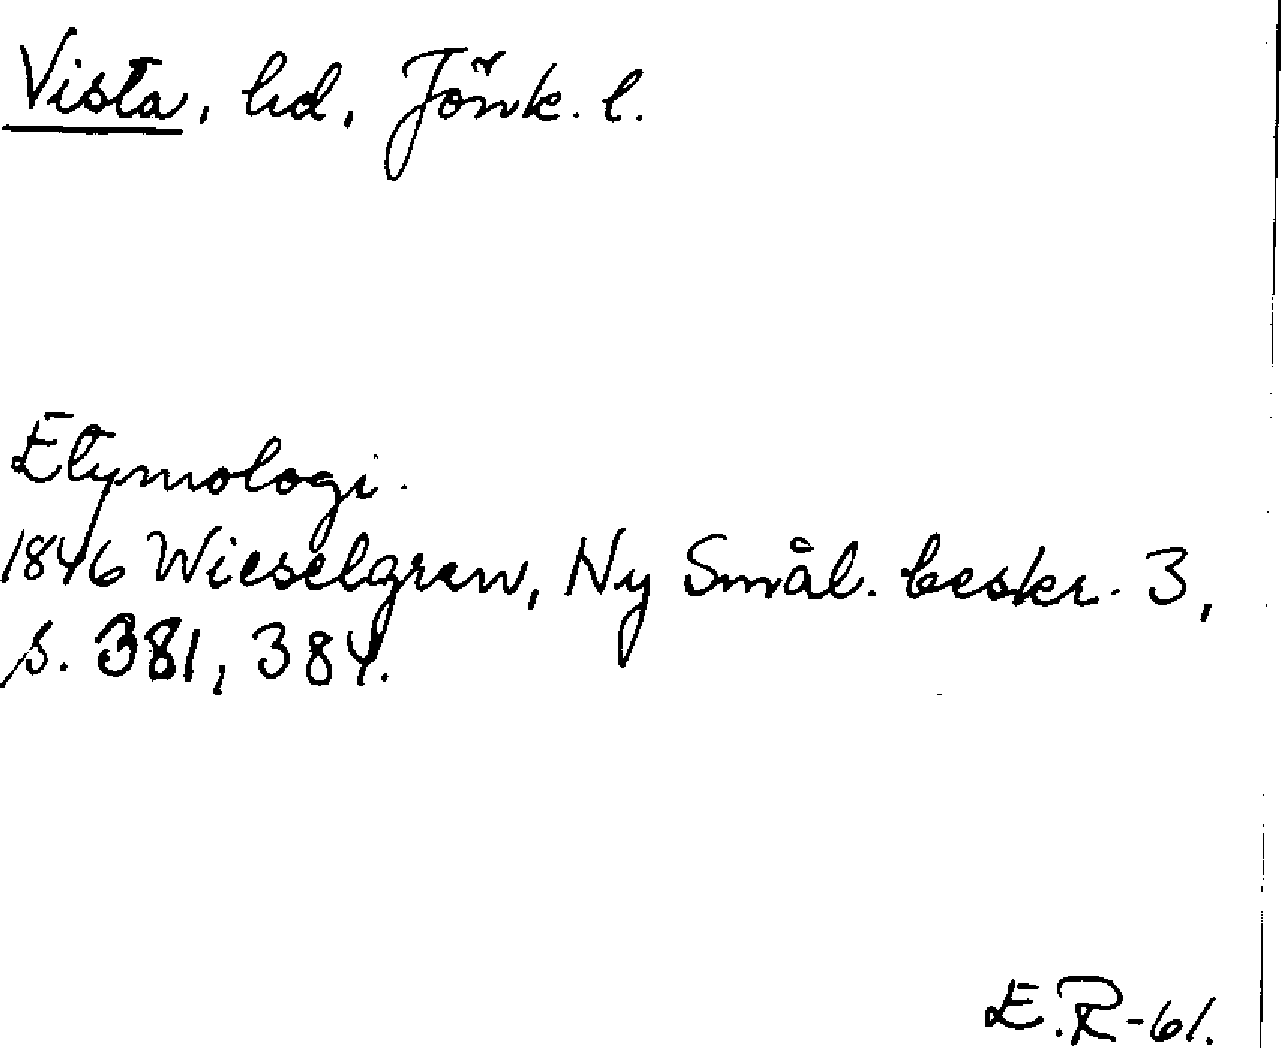 Vista, hd, Jönk. l.
Etymologi.
1846 Wieselgren, Ny Smål. beskr. 3,
s. 381, 384.
E.R-61.